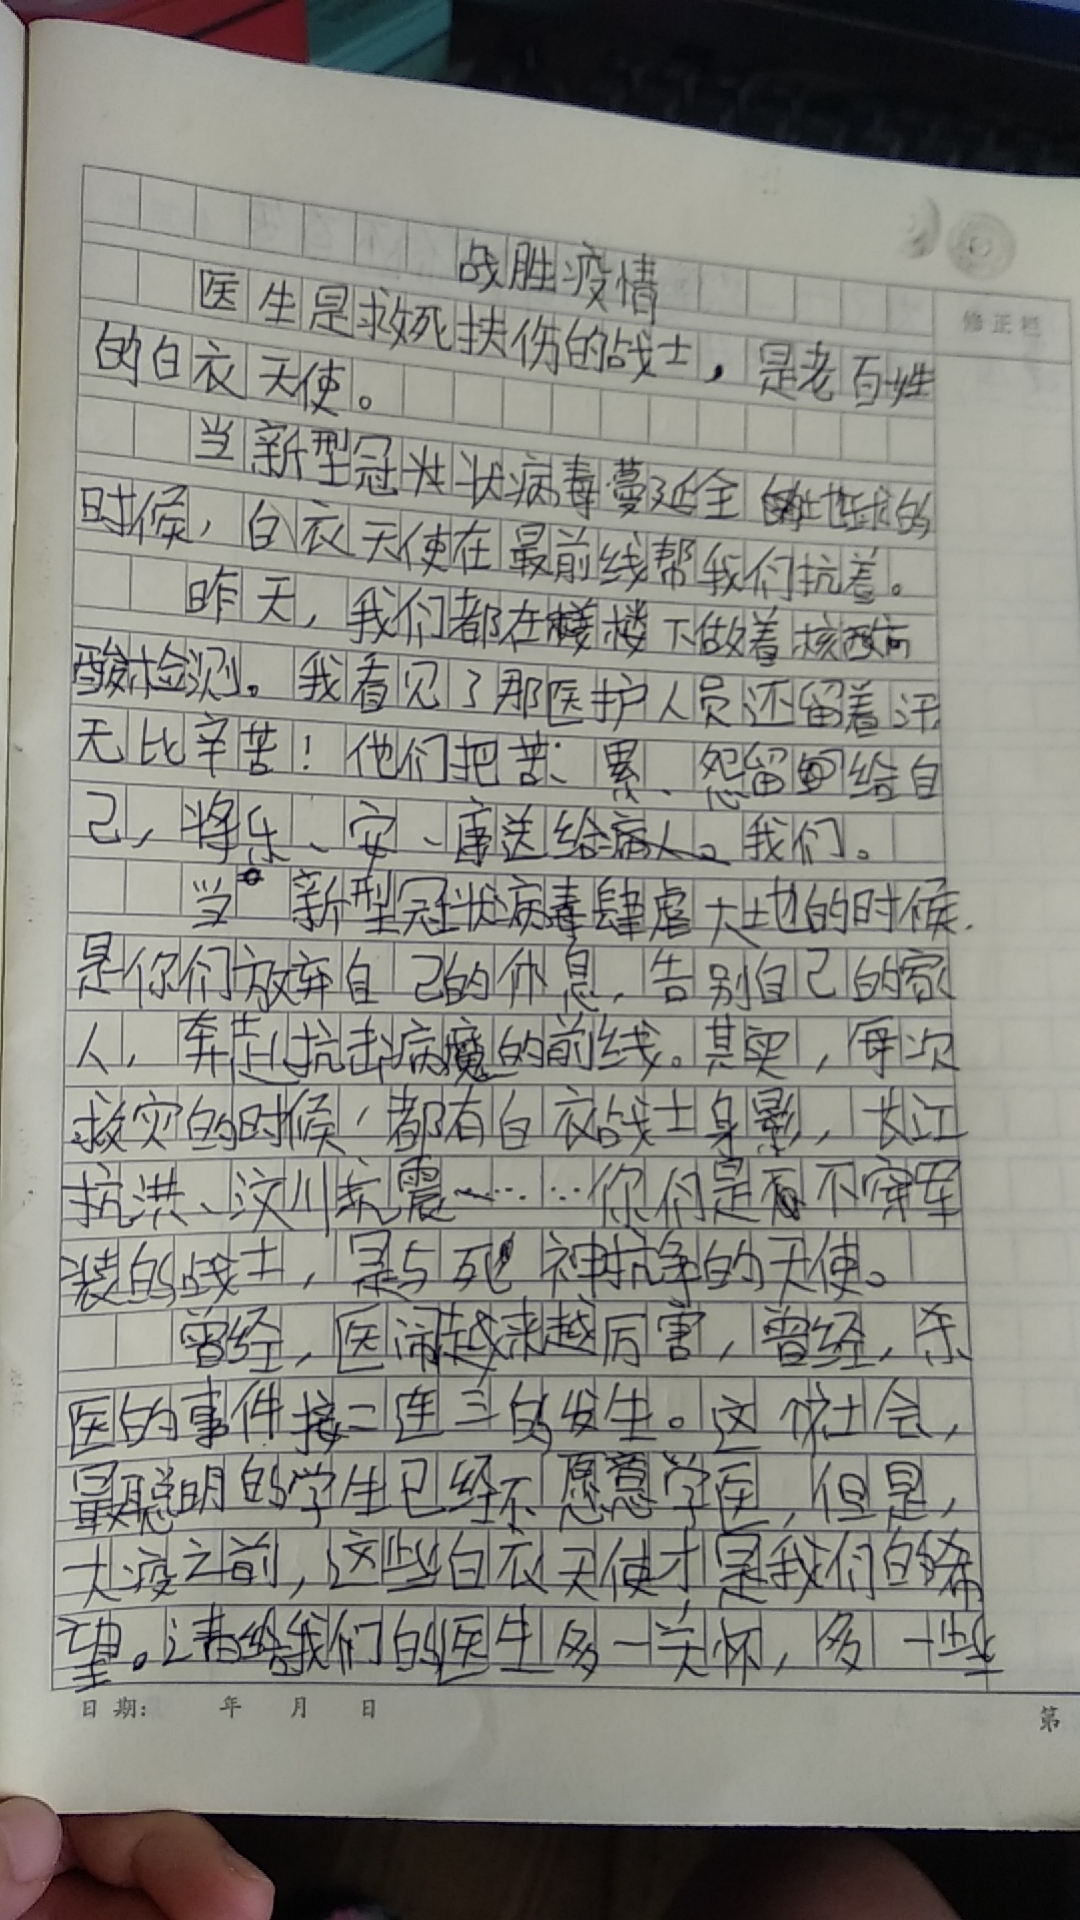 战胜疫情
修正栏
医生是救死扶伤的战士，是老百姓
的白衣天使。
当新型冠状状病毒蔓延全地球的
时候，白衣天使在最前线帮我们抗着。
昨天，我们都在楼楼下做着核酸
酸检测。我看见了那医护人员还留着汗
无比辛苦！他们把苦、累、怨留给自
己，将乐、安、康送给病人。我们。
当 新型冠状病毒肆虐大地的时候，
是你们放弃自己的休息，告别自己的家
人，奔赴抗击病魔的前线。其实，每次
救灾的时候，都有白衣战士身影，长江
抗洪、汶川抗震……你们是不穿军
装的战士，是与死神抗争的天使。
曾经，医闹越来越厉害，曾经，杀
医的事件接二连三的发生。这个社会，
最聪明的学生已经不愿意学医，但是，
大疫之前，这些白衣天使才是我们的希
望。请给我们的医生多一关怀，多一些
日期： 年 月 日
第